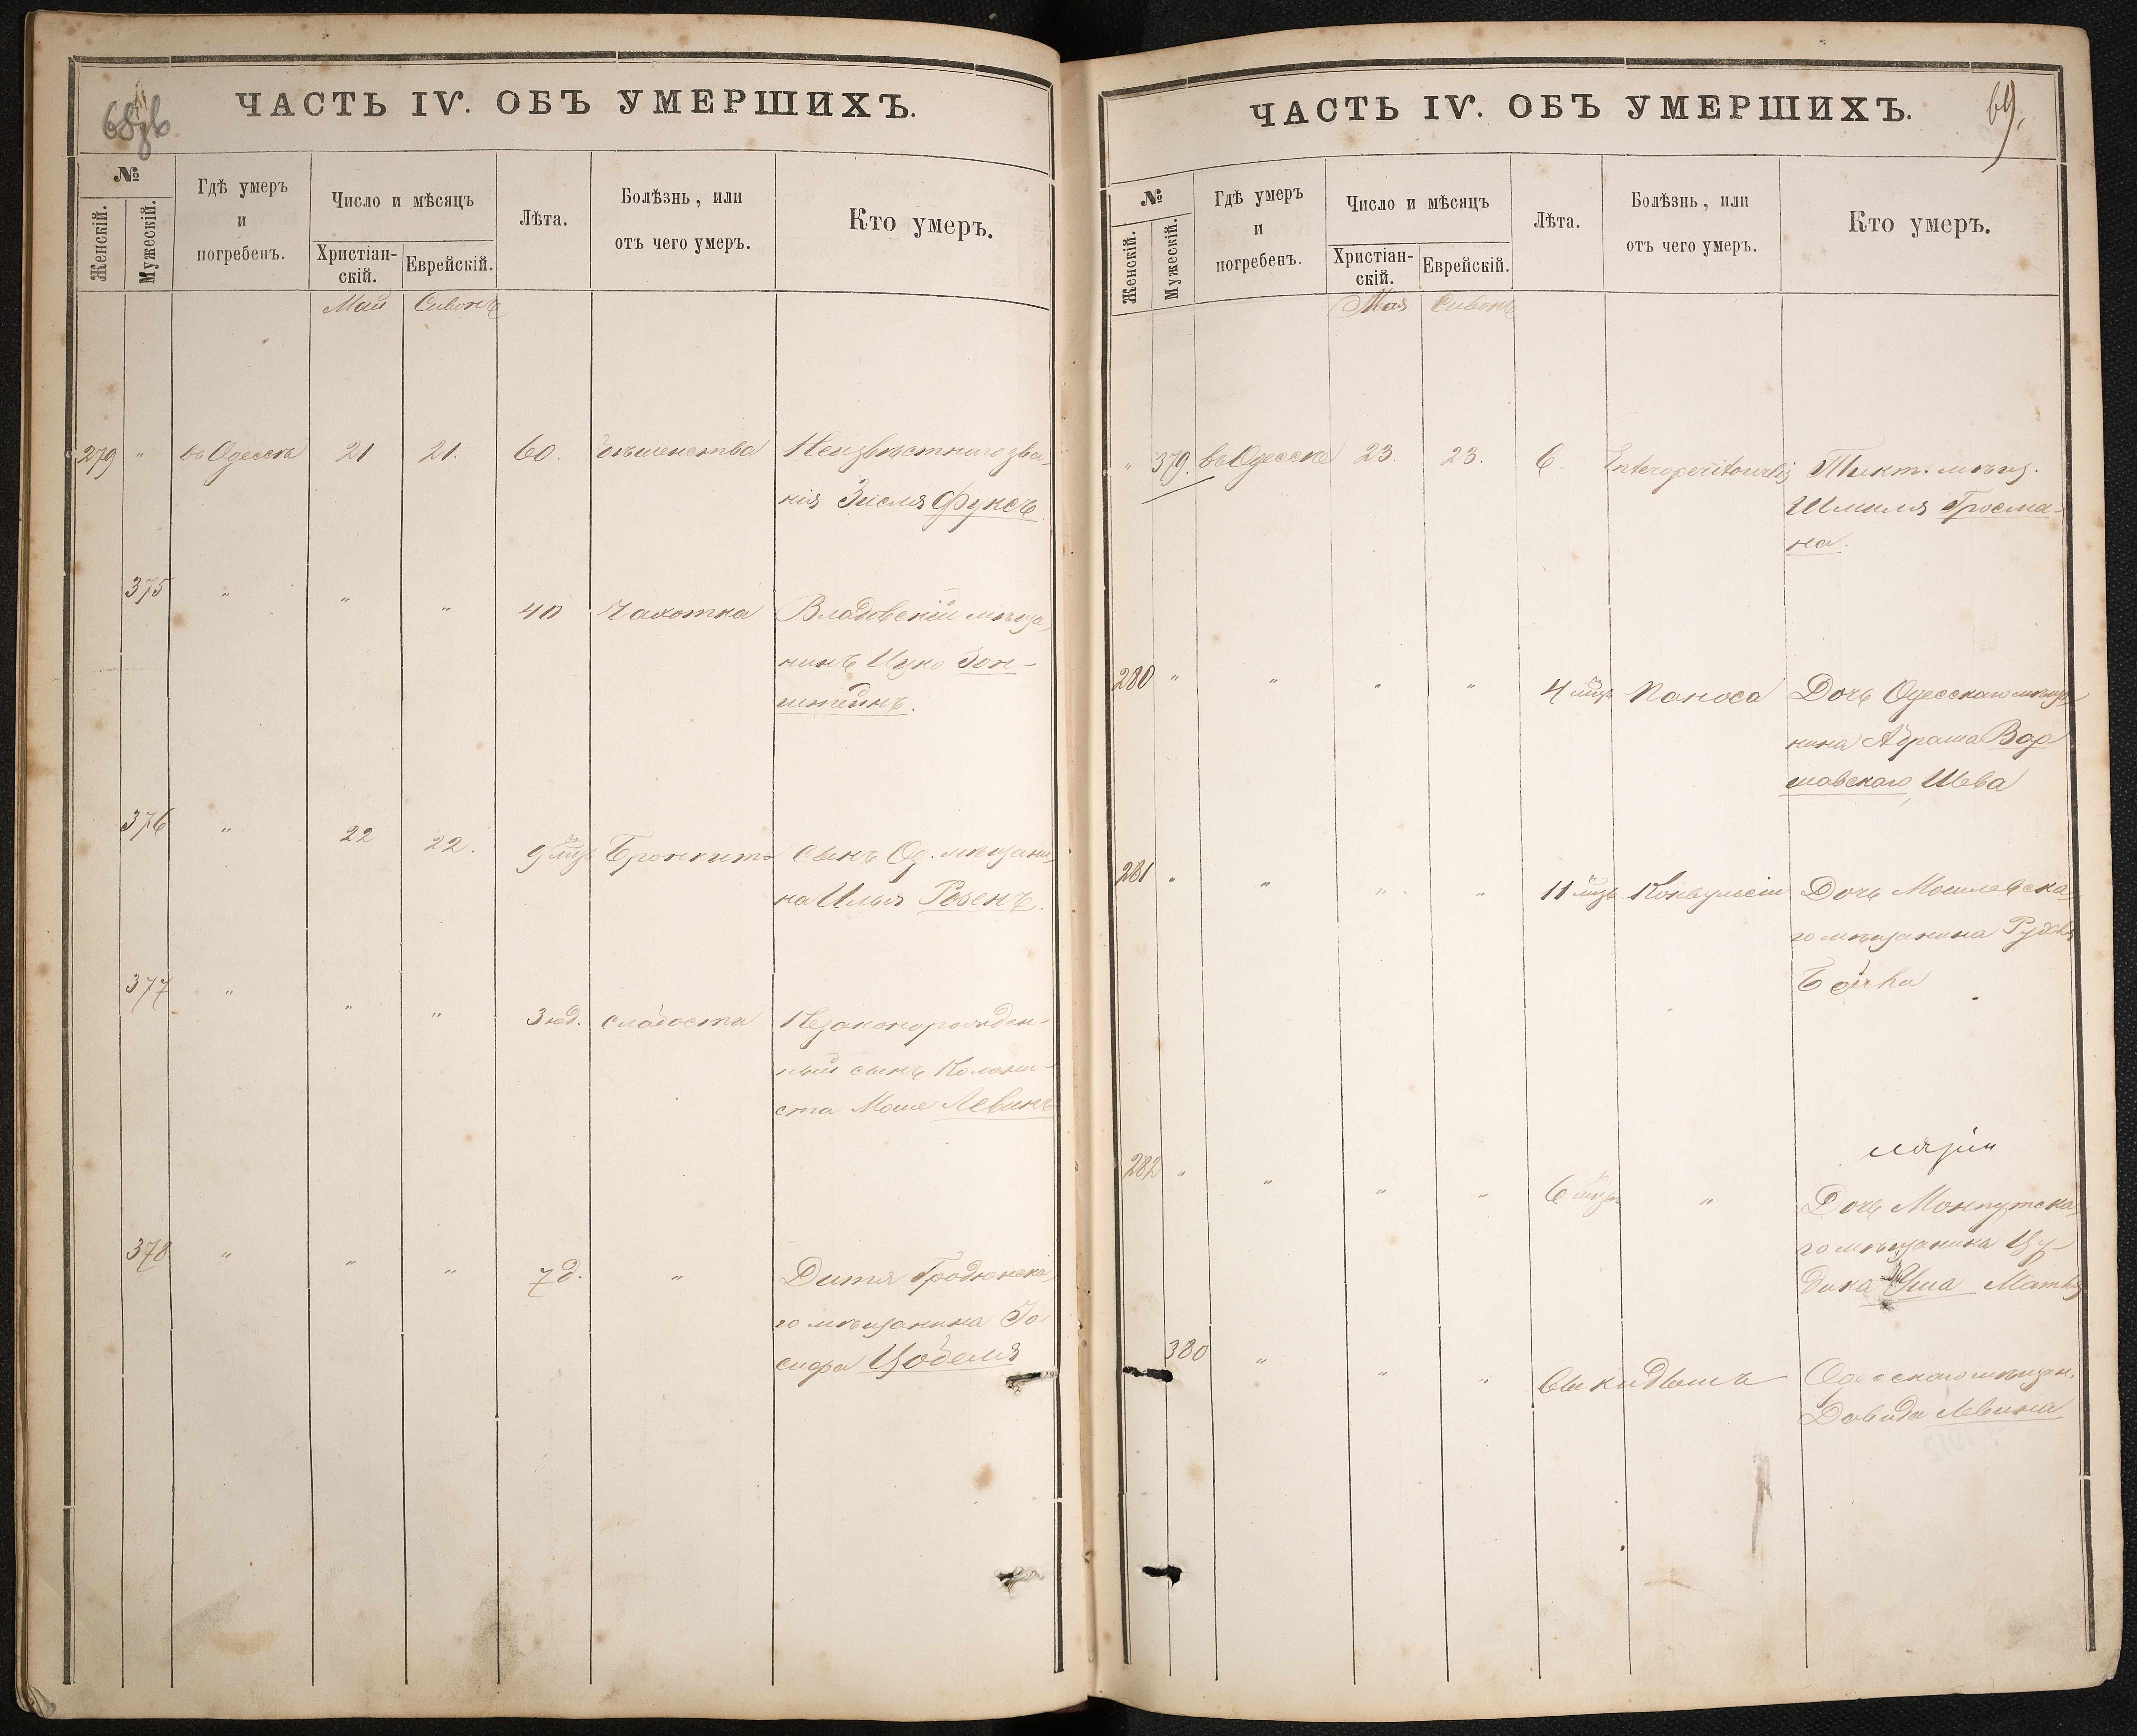 68 об
ЧАСТЬ IV. ОБЪ УМЕРШИХЪ.
№
Женскій.
Мужескій.
Гдѣ умеръ
и
погребенъ.
Число и мѣсяцъ
Христіан-
скій.
Еврейскій.
Лѣта.
Болѣзнь, или
отъ чего умеръ.
Кто умеръ.
Май Сивонъ
279 " въ Одессѣ 21 21. 60. Неизвѣстнаго зва-
нія Зисля Фуксъ
375 " " " 40 Чахотка мѣща-
нинъ Ицко Зон-
штейнъ.
376 " 22 22. 9 мѣц Бронкитъ Сынъ Од. мѣщани-
на Илья Розенъ.
377 " " " 3 нед. слабости Незаконорожден-
ный сынъ Колони-
ста Моше Левинъ
378. " " " 7 д. " Дитя Гродненска-
го мѣщанина Іо-
сифа Цобеля
69.
ЧАСТЬ IV. ОБЪ УМЕРШИХЪ.
№
Женскій.
Мужескій.
Гдѣ умеръ
и
погребенъ.
Число и мѣсяцъ
Христіан-
скій.
Еврейскій.
Лѣта.
Болѣзнь, или
отъ чего умеръ.
Кто умеръ.
Мая Сивонъ
" 379. въ Одессѣ 23. 23. 6. Тикт. мѣщ.
Шмиля Гросма-
на.
280 " " " " 4 мѣц Поноса Дочь Одесскаго мѣща-
нина Абрама Вар
шавскаго, Шева
281 " " " " 11 мѣц Конвульсіи Дочь Могилевска-
го мѣщанина
282 " " " " 6 мѣц " Дочь
го мѣщанина Цу-
дика
380 " " " выкидышъ Одесскаго мѣщан.
Давида Левина